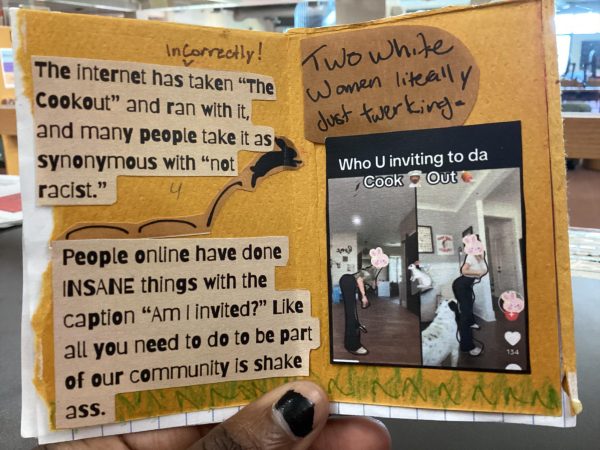 Incorrectly!
The internet has taken "The
Cookout" and ran with it,
and many people take it as
synonymous with "not
racist."
4
People online have done
INSANE things with the
caption "Am I invited?" Like
all you need to do to be part
of our community is shake
ass.
Two White
Women literally
Just twerking.
Who U inviting to da
Cook Out
134